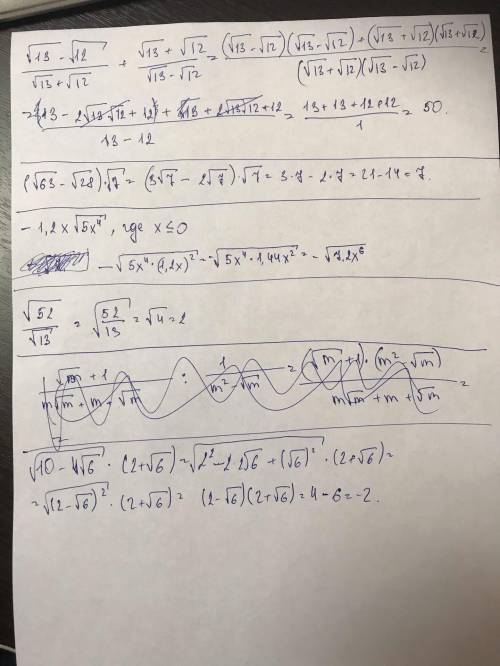 (√13 − √12)/(√13 + √12) + (√13 + √12)/(√13 − √12) = ((√13 − √12)(√13 − √12) + (√13 + √12)(√13 + √12))/((√13 + √12)(√13 − √12)) =
= (13 − 2√13·√12 + 12 + 13 + 2√13√12 + 12)/(13 − 12) = (13 + 13 + 12 + 12)/1 = 50.
(√63 − √28)·√7 = (3√7 − 2√7)·√7 = 3·7 − 2·7 = 21 − 14 = 7.
− 1,2x√5x⁴, где x ≤ 0
−√5x⁴·(1,2x)² = −√5x⁴·1,44x² = −√7,2x⁶
√52/√13 = √(52/13) = √4 = 2
(√m + 1)/(m√m + m + √m) : 1/(m² − √m) = ((√m + 1)·(m² − √m))/(m√m + m + √m) =
√10 − 4√6 · (2 + √6) = √2² − 2·2√6 + (√6)² · (2 + √6) =
= √(2 − √6)² · (2 + √6) = (2 − √6)(2 + √6) = 4 − 6 = −2.